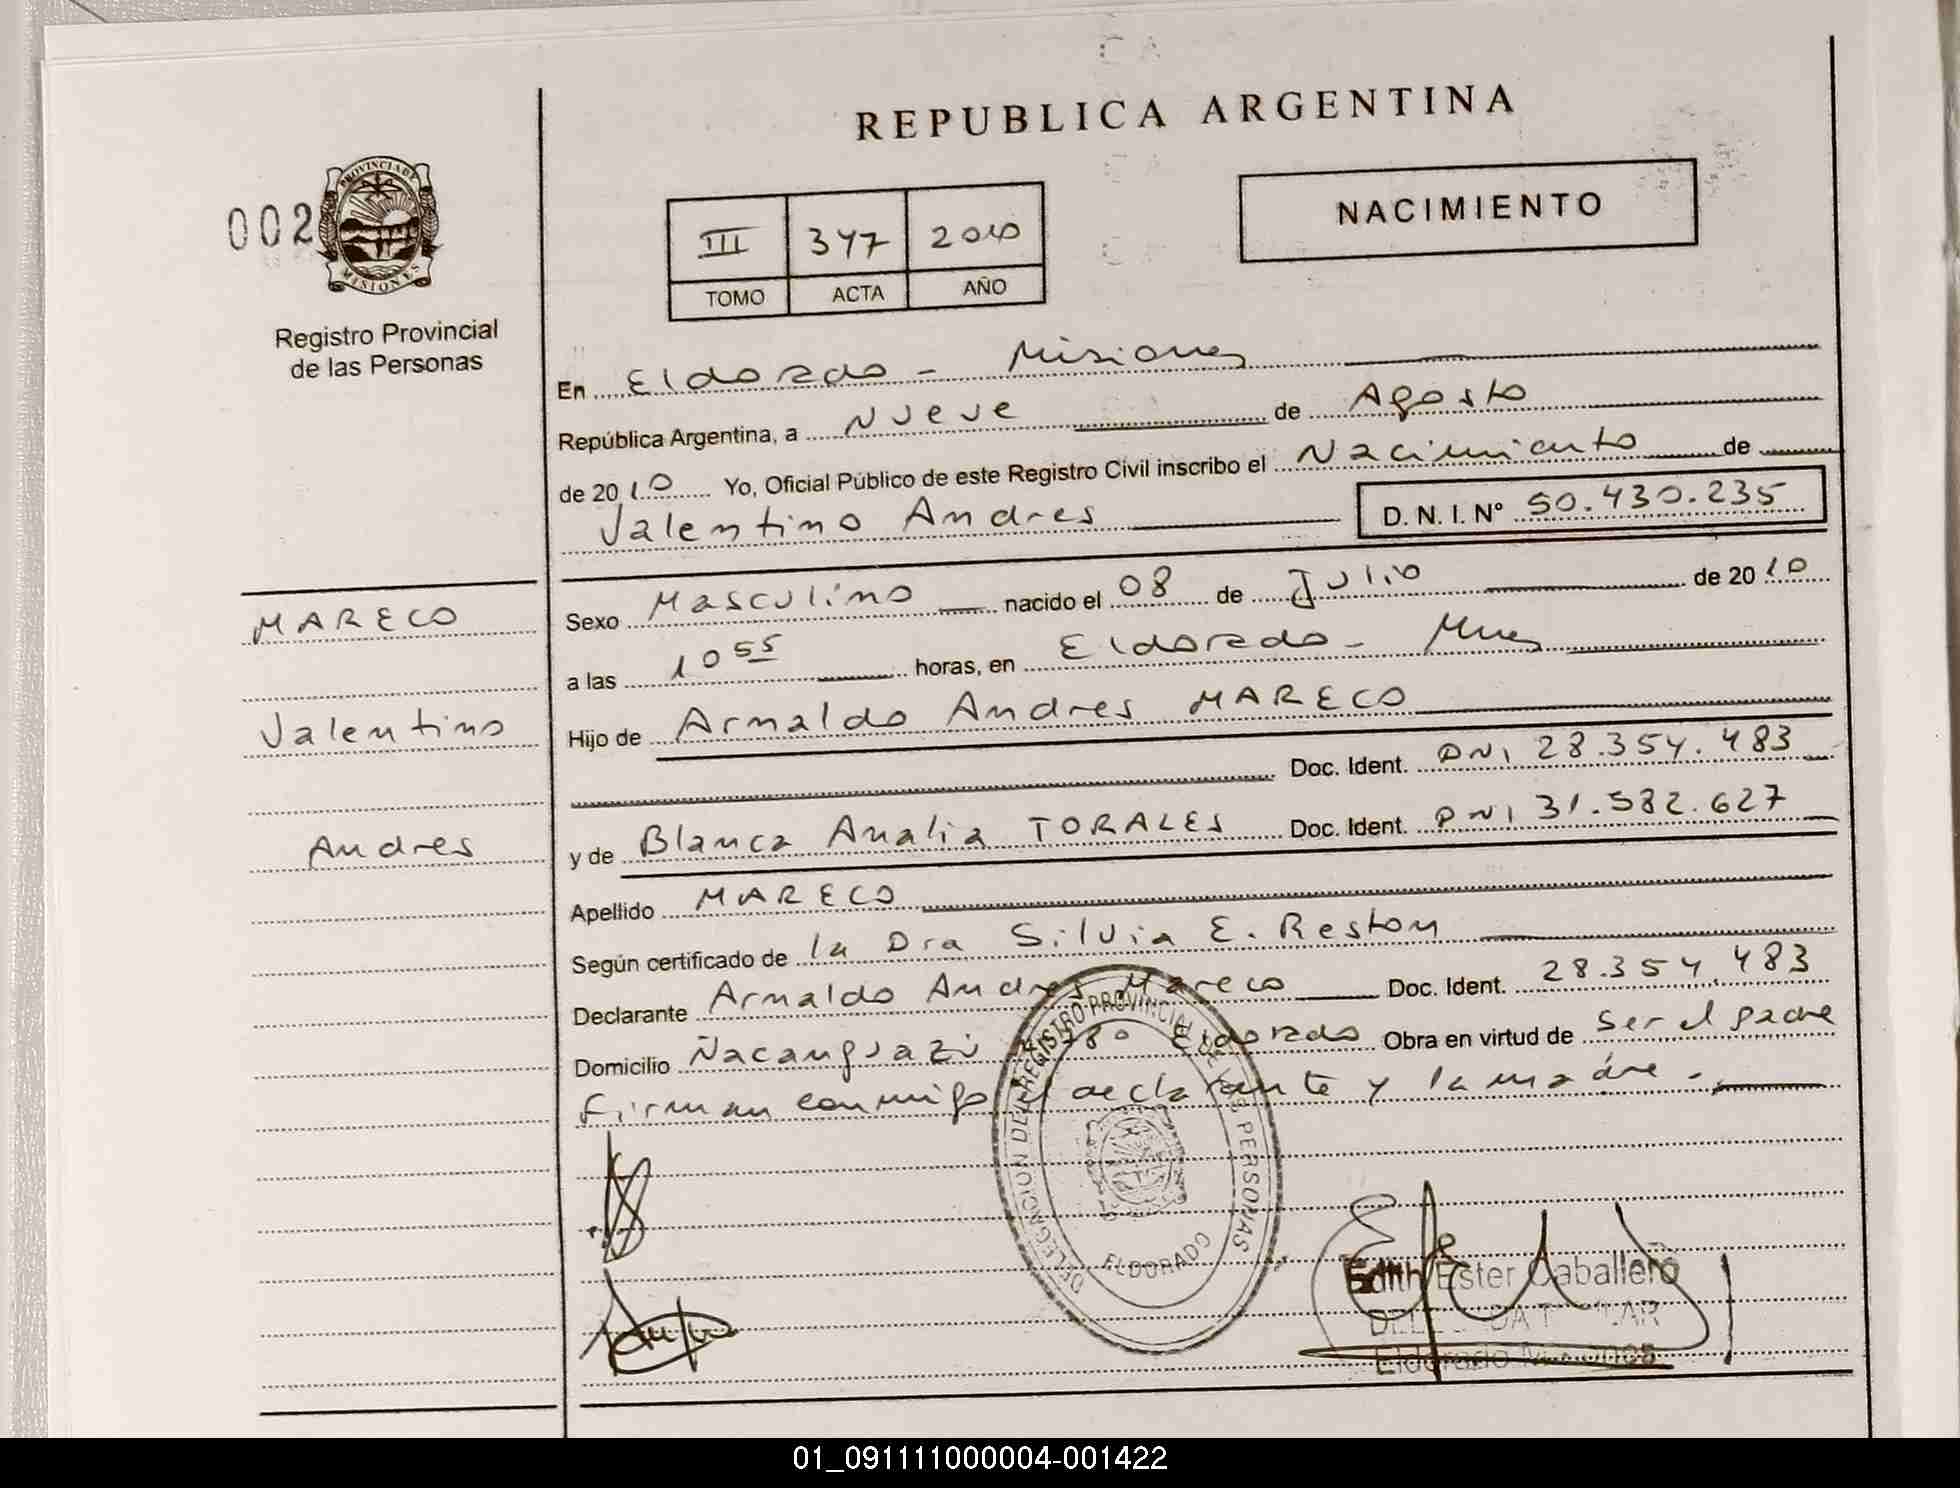 REPUBLICA ARGENTINA
002
PROVINCIA DE MISIONES
Registro Provincial
de las Personas
III 347 2010
TOMO ACTA AÑO
NACIMIENTO
En Eldorado - Misiones
República Argentina, a Nueve de Agosto
de 2010 Yo, Oficial Público de este Registro Civil inscribo el Nacimiento de
Valentino Andres D. N. I. Nº 50.430.235
MARECO
Valentino
Andres
Sexo Masculino nacido el 08 de Julio de 2010
a las 10 55 horas, en Eldorado - Mnes
Hijo de Arnaldo Andres MARECO
Doc. Ident. DNI 28.354.483
y de Blanca Analia TORALES Doc. Ident. DNI 31.582.627
Apellido MARECO
Según certificado de la Dra Silvia E. Reston
Declarante Arnaldo Andres Mareco Doc. Ident. 28.354.483
Domicilio Ñacanguazú Eldorado Obra en virtud de ser el padre
Firman conmigo el declarante y la madre.
DELEGACION DEL REGISTRO PROVINCIAL DE LAS PERSONAS
ELDORADO
Edith Ester Caballero
Eldorado
01_091111000004-001422